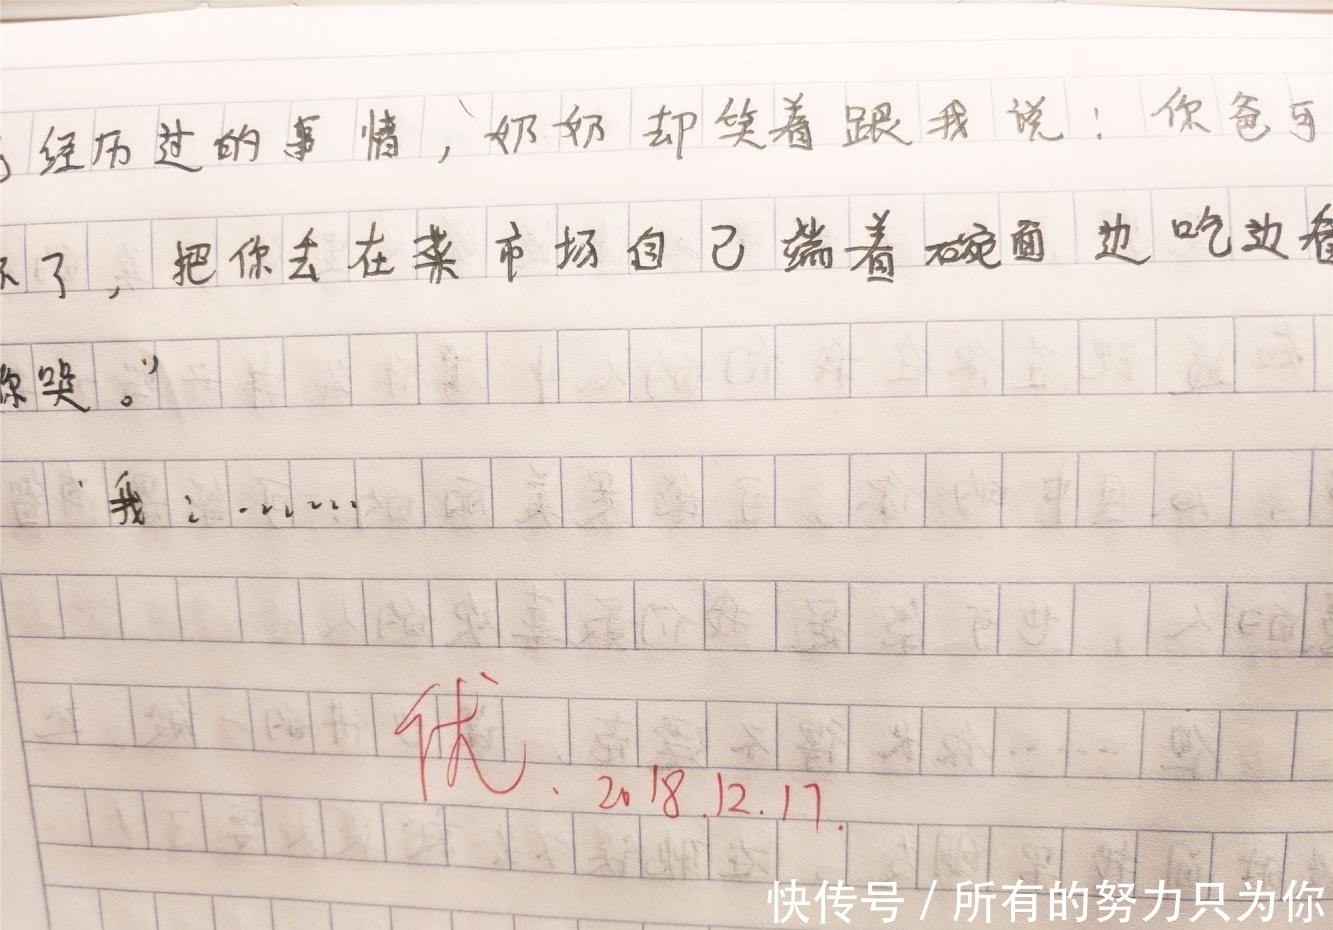 经历过的事情，奶奶却笑着跟我说：你爸可
坏了，把你丢在菜市场自己端着碗面边吃边看
你哭。”
我：……
优.2018.12.17.
快传号 / 所有的努力只为你